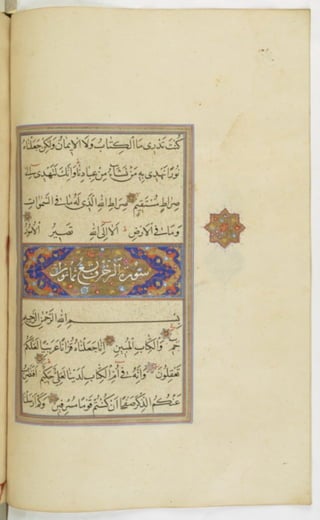 كنت تدرى ما الكتاب ولا الايمان ولكن جعلناه
نورا نهدى به من نشاء من عبادنا وانك لتهدى الى
صراط مستقيم صراط الله الذى له ما فى السموات
وما فى الارض الا الى الله تصير الامور
سورة الزخرف
بسم الله الرحمن الرحيم
حم والكتاب المبين انا جعلناه قرانا عربيا لعلكم
تعقلون وانه فى ام الكتاب لدينا لعلى حكيم افنضرب
عنكم الذكر صفحا ان كنتم قوما مسرفين وكم ارسلنا